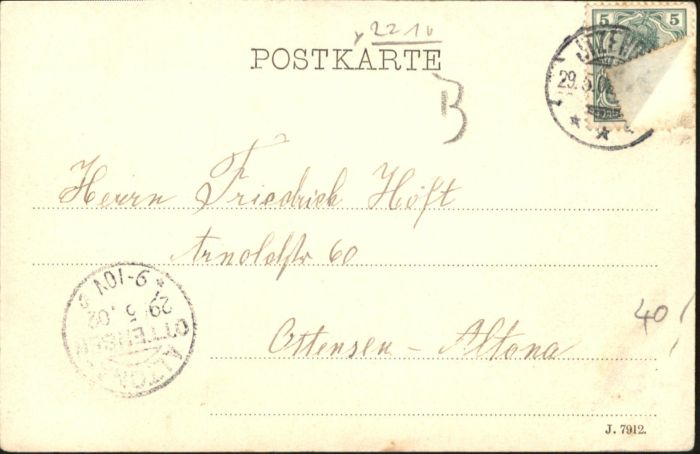 2216
POSTKARTE
5 5
29.5.02
B
Herrn Friedrich Höft
Arnoldstr 60
Ottensen - Altona
9-10V
29.5.02
OTTENSEN
40!
J. 7912.